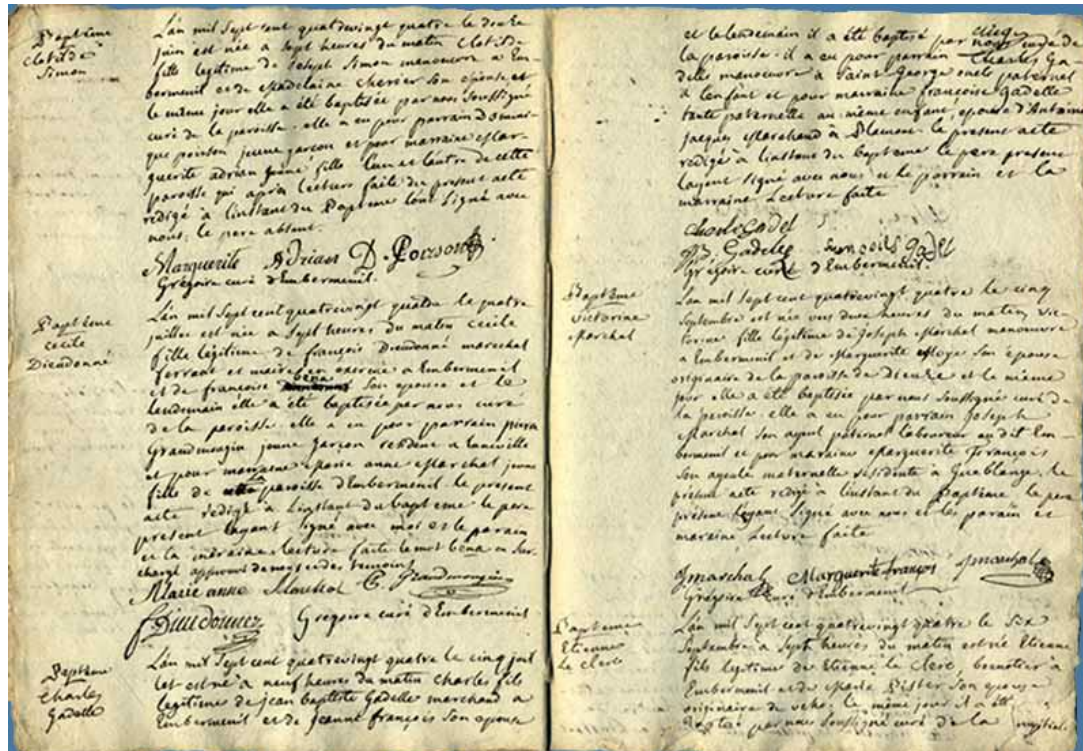 Baptême
Clotilde
Simon
L'an mil sept cent quatrevingt quatre le douze
juin est née a sept heures du matin Clotilde
fille legitime de joseph Simon manoeuvre a Em-
bermenil et de Madelaine cherier son epouse et
le même jour elle a été baptisée par nous soussigné
curé de la paroisse. elle a eu pour parrain Domini-
que poirson jeune garçon et pour marraine Mar-
guerite adrian jeune fille l'un et l'autre de cette
paroisse qui après lecture faite du present acte
redigé à l'instant du Baptême l'ont signé avec
nous, le pere absent.
Marguerite Adrian D. Poirson
Grégoire curé d'Embermenil.
Baptême
cecile
Dieudonné
L'an mil sept cent quatrevingt quatre le quatre
juillet est née a sept heures du matin cecile
fille légitime de françois Dieudonné marechal
ferrant et maire en exercice a Embermenil
et de francoise bena son epouse et le
lendemain elle a été baptisée par nous curé
de la paroisse. elle a eu pour parrain
Grandmongin jeune garçon residant a
et pour marraine Marie anne Marchal jeune
fille de la paroisse d'Embermenil le present
acte redigé a l'instant du baptême le pere
present l'ayant signé avec moi et le parain
et la maraine lecture faite le mot bena en sur-
charge approuvé de nous et des temoins
Marie anne Grandmongin
Dieudonnez Gregoire curé d'Embermenil
Baptême
Charles
Gadelle
L'an mil sept cent quatrevingt quatre le cinq juil
let est né à neuf heures du matin Charles fils
legitime de jean baptiste Gadelle marchand a
Embermenil et de jeanne françois son epouse
et le lendemain il a été baptisé par nous curé de
la paroisse. il a eu pour parrain Charles Ga-
delle manoeuvre a Saint George oncle paternel
a l'enfant et pour marraine françoise gadelle
tante paternelle au même enfant, epouse d'Antoine
jacques Marchand à Blamont. le present acte
redigé à l'instant du baptême le pere present
l'ayant signé avec nous et le parrain et la
marraine Lecture faite
Charle Gadel
JB Gadelle Gadel
Grégoire curé d'Embermenil.
Baptême
victorine
Marchal
L'an mil sept cent quatrevingt quatre le cinq
Septembre est née vers deux heures du matin, vic-
torine fille légitime de Joseph Marchal manouvre
a Embermenil et de Marguerite Moye son épouse
originaire de la paroisse de Dieuze et le même
jour elle a été baptisée par nous soussigné curé de
la paroisse. elle a eu pour parrain Joseph
Marchal son ayeul paternel laboureur au dit Em-
bermenil et pour maraine Marguerite françois
son ayeule maternelle residente à Gueblange. le
présent acte redigé à l'instant du Baptême le pere
présent l'ayant signé avec nous et les parain et
maraine Lecture faite
Jmarchal Marguerite françois Jmarchal
Grégoire curé d'Embermenil
Baptême
Etienne
le Clerc
L'an mil sept cent quatrevingt quatre le Six
Septembre a sept heures du matin est né Etienne
fils legitime de Etienne le Clerc, a
Embermenil et de Marie Pister son epouse
originaire de veho. le même jour il a été
baptisé par nous soussigné curé de la